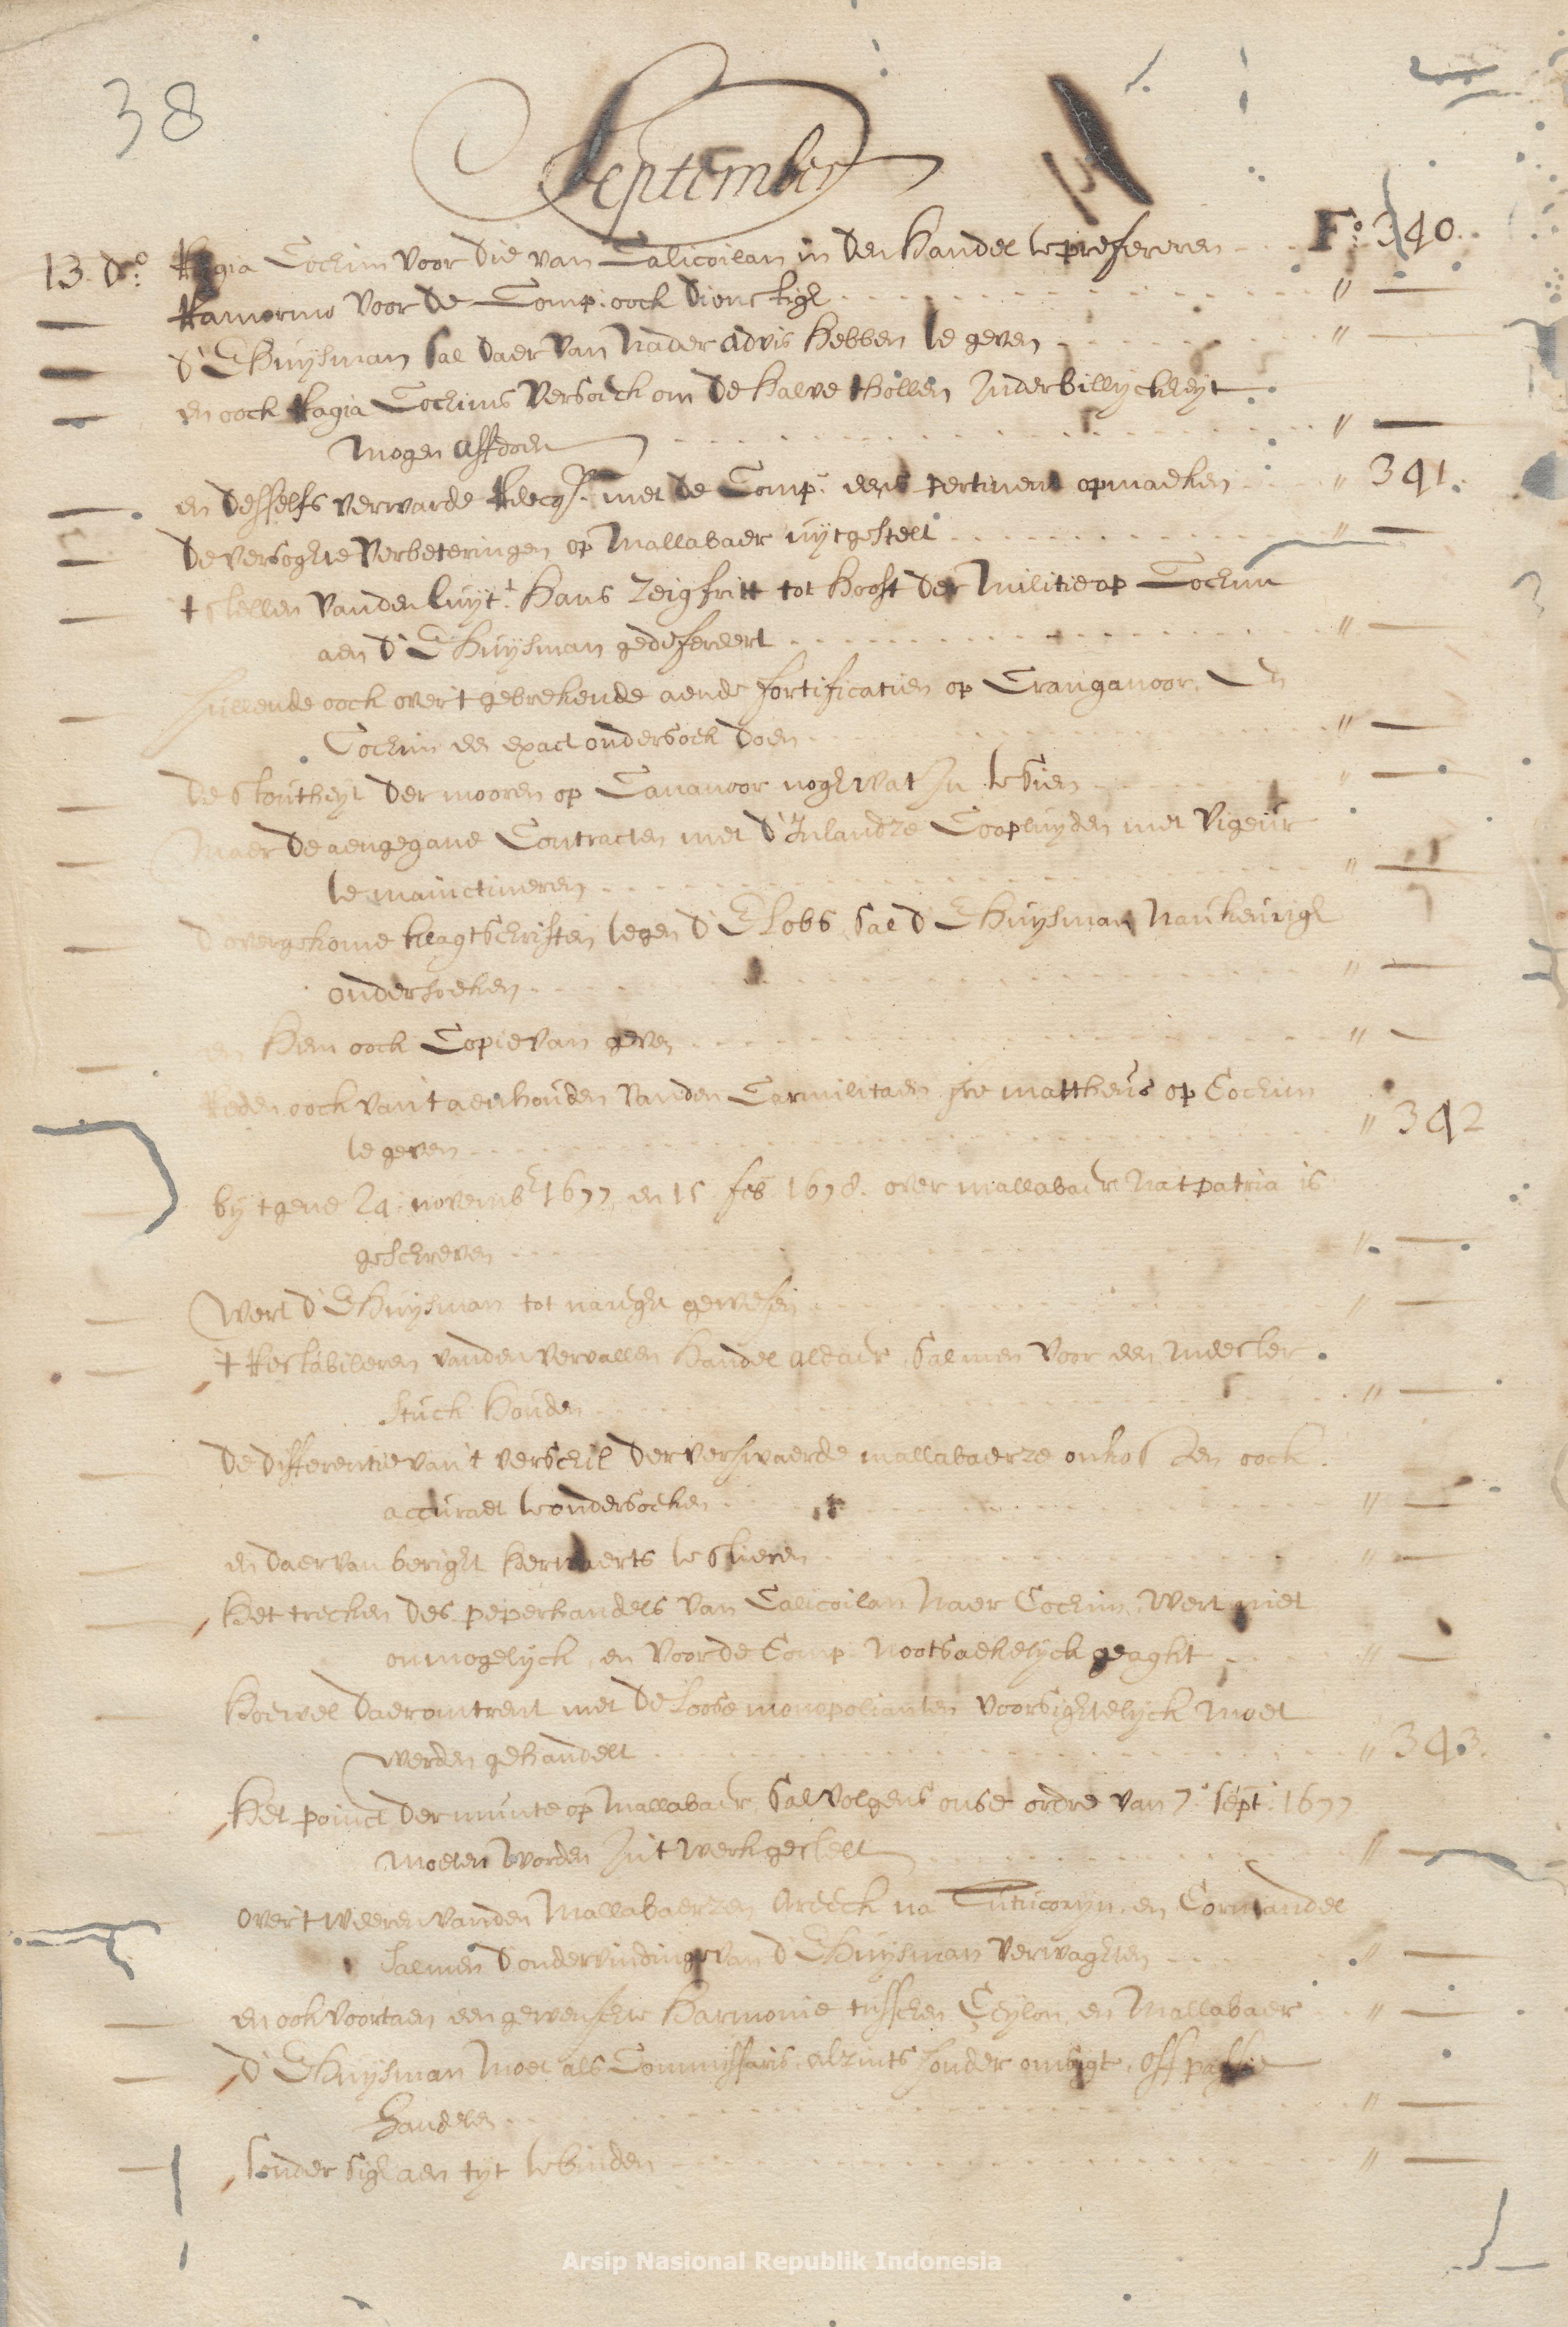 38
September
13 do. Ragia Cochim voor die van Calicoilan in den Handel te prefereren F.o 340.
Ramorme voor de Comp. oock dienstigh "
d' E Huijsman sal daer van nader advis hebben te geven "
en oock Ragia Cochims versoeck om de halve thollen in der billijckheijt
mogen affdoen "
en desselfs verwarde Reecq. met de Comp. eens pertinent opmaeken " 341.
de versoghte verbeteringen op Mallabaer uijtgestelt "
t stellen van den luijt.t Hans Zeigfritt tot hooft der militie op Cochim
aen d' E Huijsman gedefereert "
sullende oock over t gebrekende aende fortificatien op Cranganoor, en
Cochim een exact ondersoek doen "
de stoutheijt der mooren op Cananoor nogh wat in te sien "
Maer de aengegane Contracten met d' Inlandze Coopluijden met vigeur
te mainctineren "
d overgekome klagtschriften tegen d' E Lobs sal d' E Huijsman naukeurigh
ondersoeken "
en hem oock Copie van geven "
Reden oock van t aenhouden van den Carmilitaen fre mattheus op Cochim
te geven " 342
bij t gene 24 novemb. 1677, en 15 feb. 1678. over mallabaer na t patria is
geschreven "
Wert d' E Huijsman tot naright gewesen "
t Restabileren van den vervallen handel aldaer, sal men voor een meester
stuck houden "
de differentie van t verschil der verswaerde mallabaerze onkosten oock
accuraet te ondersoeken "
en daer van beright herwaerts te stieren "
Het trecken des peperhandels van Calicoilan naer Cochim, wert niet
onmogelijck, en voor de Comp. nootsaekelijck geaght "
Hoewel daeromtrent met de loose monopolianten voorsightelijck moet
werden gehandelt " 343.
Het poinct der munte op Mallabaer, sal volgens onse ordre van 7.o sept. 1677
moeten worden in t werk gestelt "
over t weeren van den Mallabaerzen Areeck na Tutucorijn, en Cormandel
sal men d ondervindinge van d' E Huijsman verwaghten "
en ook voortaen een gewenschte harmonie tusschen Ceijlon, en Mallabaer "
d' E Huijsman moet als Commissaris, alzints sonder omsigt, off passie
handelen "
sonder sigh aen tijt te binden "
Arsip Nasional Republik Indonesia